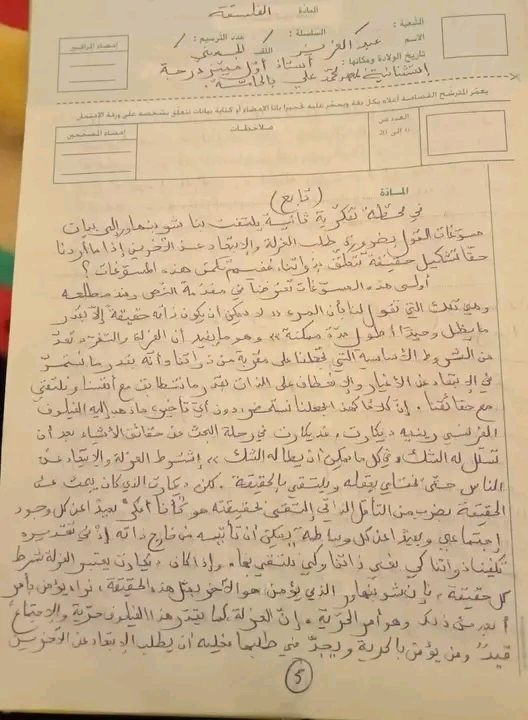 المادة الفلسفة
الشعبة : السلسلة : عدد الترسيم :
الاسم عبد العزيز اللقب
تاريخ الولادة ومكانها : أستاذ أول مميز درجة
إستثنائية علي بالحامة
إمضاء المراقبين
يعمّر المترشح القصاصة أعلاه بكل دقة ويحجّر عليه تحجيرا باتا الإمضاء أو كتابة بيانات تتعلق بشخصه على ورقة الامتحان
العدد من 0 إلى 20
ملاحظات
إمضاء المصححين
المادة
(تابع)
في محطة تفكرية ثانية يلتفت بنا شوبنهاور إلى بيان
مسوّغات القول بضرورة طلب العزلة والإبتعاد عن الآخرين إذا ما أردنا
حقا تشكيل حقيقة تتعلق بذواتنا، ففيم تكمن هذه المسوّغات ؟
أولى هذه المسوّغات تعترضنا في مقدمة النص وعند مطلعه
وهي تلك التي تقول لنا بأن المرء "لا يمكن أن يكون ذاته حقيقة إلا بقدر
ما يظل وحيدا أطول مدّة ممكنة" وهو ما يفيد أن العزلة والتفرّد تعدّ
من الشروط الأساسية التي تجعلنا على مقربة من ذواتنا وأنه بقدر ما نستمرّ
في الإبتعاد عن الأغيار والإنعطاف على الذات بقدر ما نتطابق مع أنفسنا ونلتقي
مع حقائقنا . إن كلاما كهذا يجعلنا نستحضر دون أيّ تأجيل ما ذهب إليه الفيلسوف
الفرنسي رينيه ديكارت ، فديكارت في رحلة البحث عن حقائق الأشياء بعد أن
تسلّل له الشك "في كل ما يمكن أن يطاله الشك" إشترط العزلة والإبتعاد عن
الناس حتّى يختلي بعقله ويلتقي بالحقيقة . لكن ديكارت الذي كان يبحث عن
الحقيقة بضرب من التأمل الذاتي المقتضي لحقيقته هو كأنا أفكر بعيدا عن كل وجود
إجتماعي وبعيدا عن كل وساطة يمكن أن تأتيه من خارج ذاته إذ في تقديره
تكفينا ذواتنا كي نعي ذاتنا وكي نلتقي بها . وإذا كان ديكارت يعتبر العزلة شرط
كل حقيقة ، فإن شوبنهاور الذي يؤمن هو الآخر بمثل هذه الحقيقة ، نراه يؤمن بأمر
أبعد من ذلك وهو أمر الحريّة . إنّ العزلة كما يقدّر هذا الفيلسوف حريّة والإجتماع
قيدٌ ومن يؤمن بالحرية ويجدّ في طلبها فعليه أن يطلب الإبتعاد عن الآخرين
5